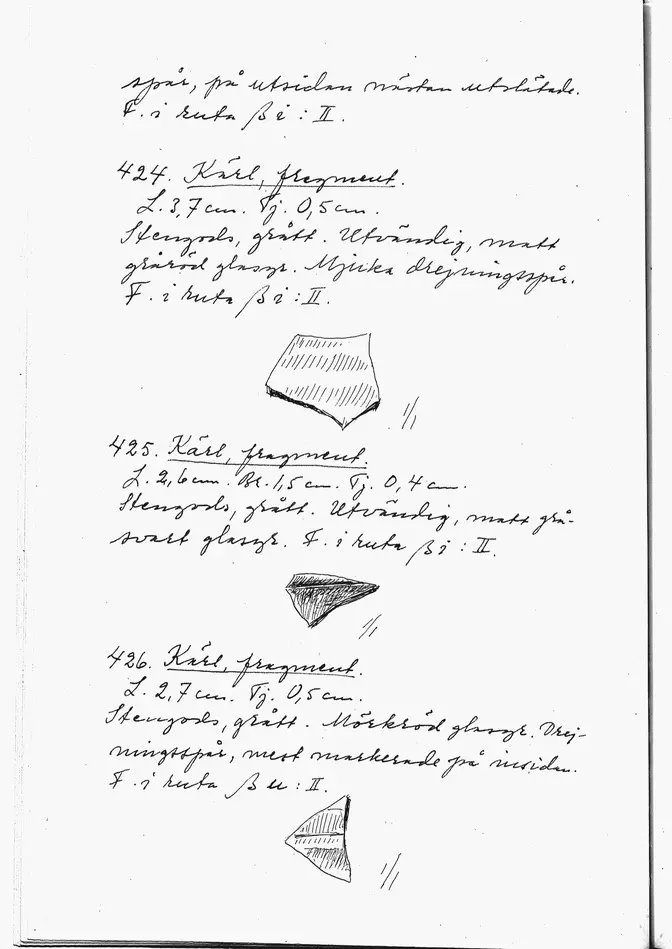 spår, på utsidan nästan utslätade.
F. i ruta β i : II.
424. Kärl, fragment.
L. 3,7 cm. Tj. 0,5 cm.
Stengods, grått. Utvändig, matt
gråröd glasyr. Mjuka drejningsspår.
F. i ruta β i : II.
1/1
425. Kärl, fragment.
L. 2,6 cm. Br. 1,5 cm. Tj. 0,4 cm.
Stengods, grått. Utvändig, matt grå-
svart glasyr. F. i ruta β i : II.
1/1
426. Kärl, fragment.
L. 2,7 cm. Tj. 0,5 cm.
Stengods, grått. Mörkröd glasyr. Drej-
ningsspår, mest markerade på insidan.
F. i ruta β u : II.
1/1